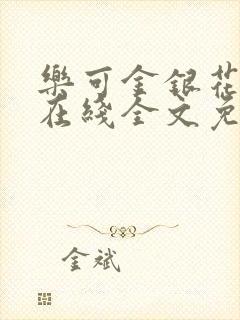 樂可金銀花
在綫全文免
金斌